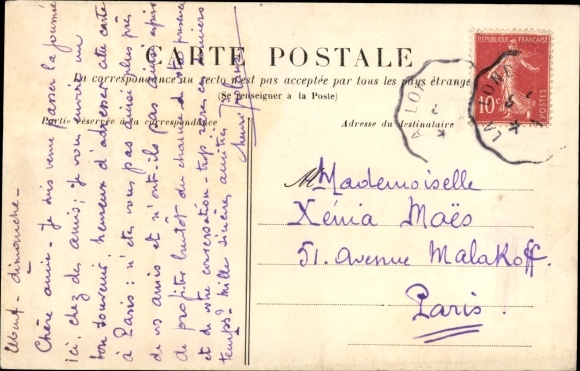 CARTE POSTALE
La correspondance au recto n'est pas acceptée par tous les pays étrangers
(Se renseigner à la Poste)
Partie réservée à la correspondance
Adresse du destinataire
REPUBLIQUE FRANÇAISE
10c
POSTES
Mademoiselle
Xénia Maës
51. avenue Malakoff.
Paris.
dimanche -
Chère amie - Je suis venue passer la journée
ici, chez des amis; je vous envoie un
bon souvenir. heureux d'adresser cette carte
à Paris: n'êtes vous pas ainsi plus près
de vos amis et n'ont-ils pas à ainsi espoir
de profiter bientôt du charme de votre présence
et de votre conversation - trop rares en ces divers
temps? mille sincères amitiés